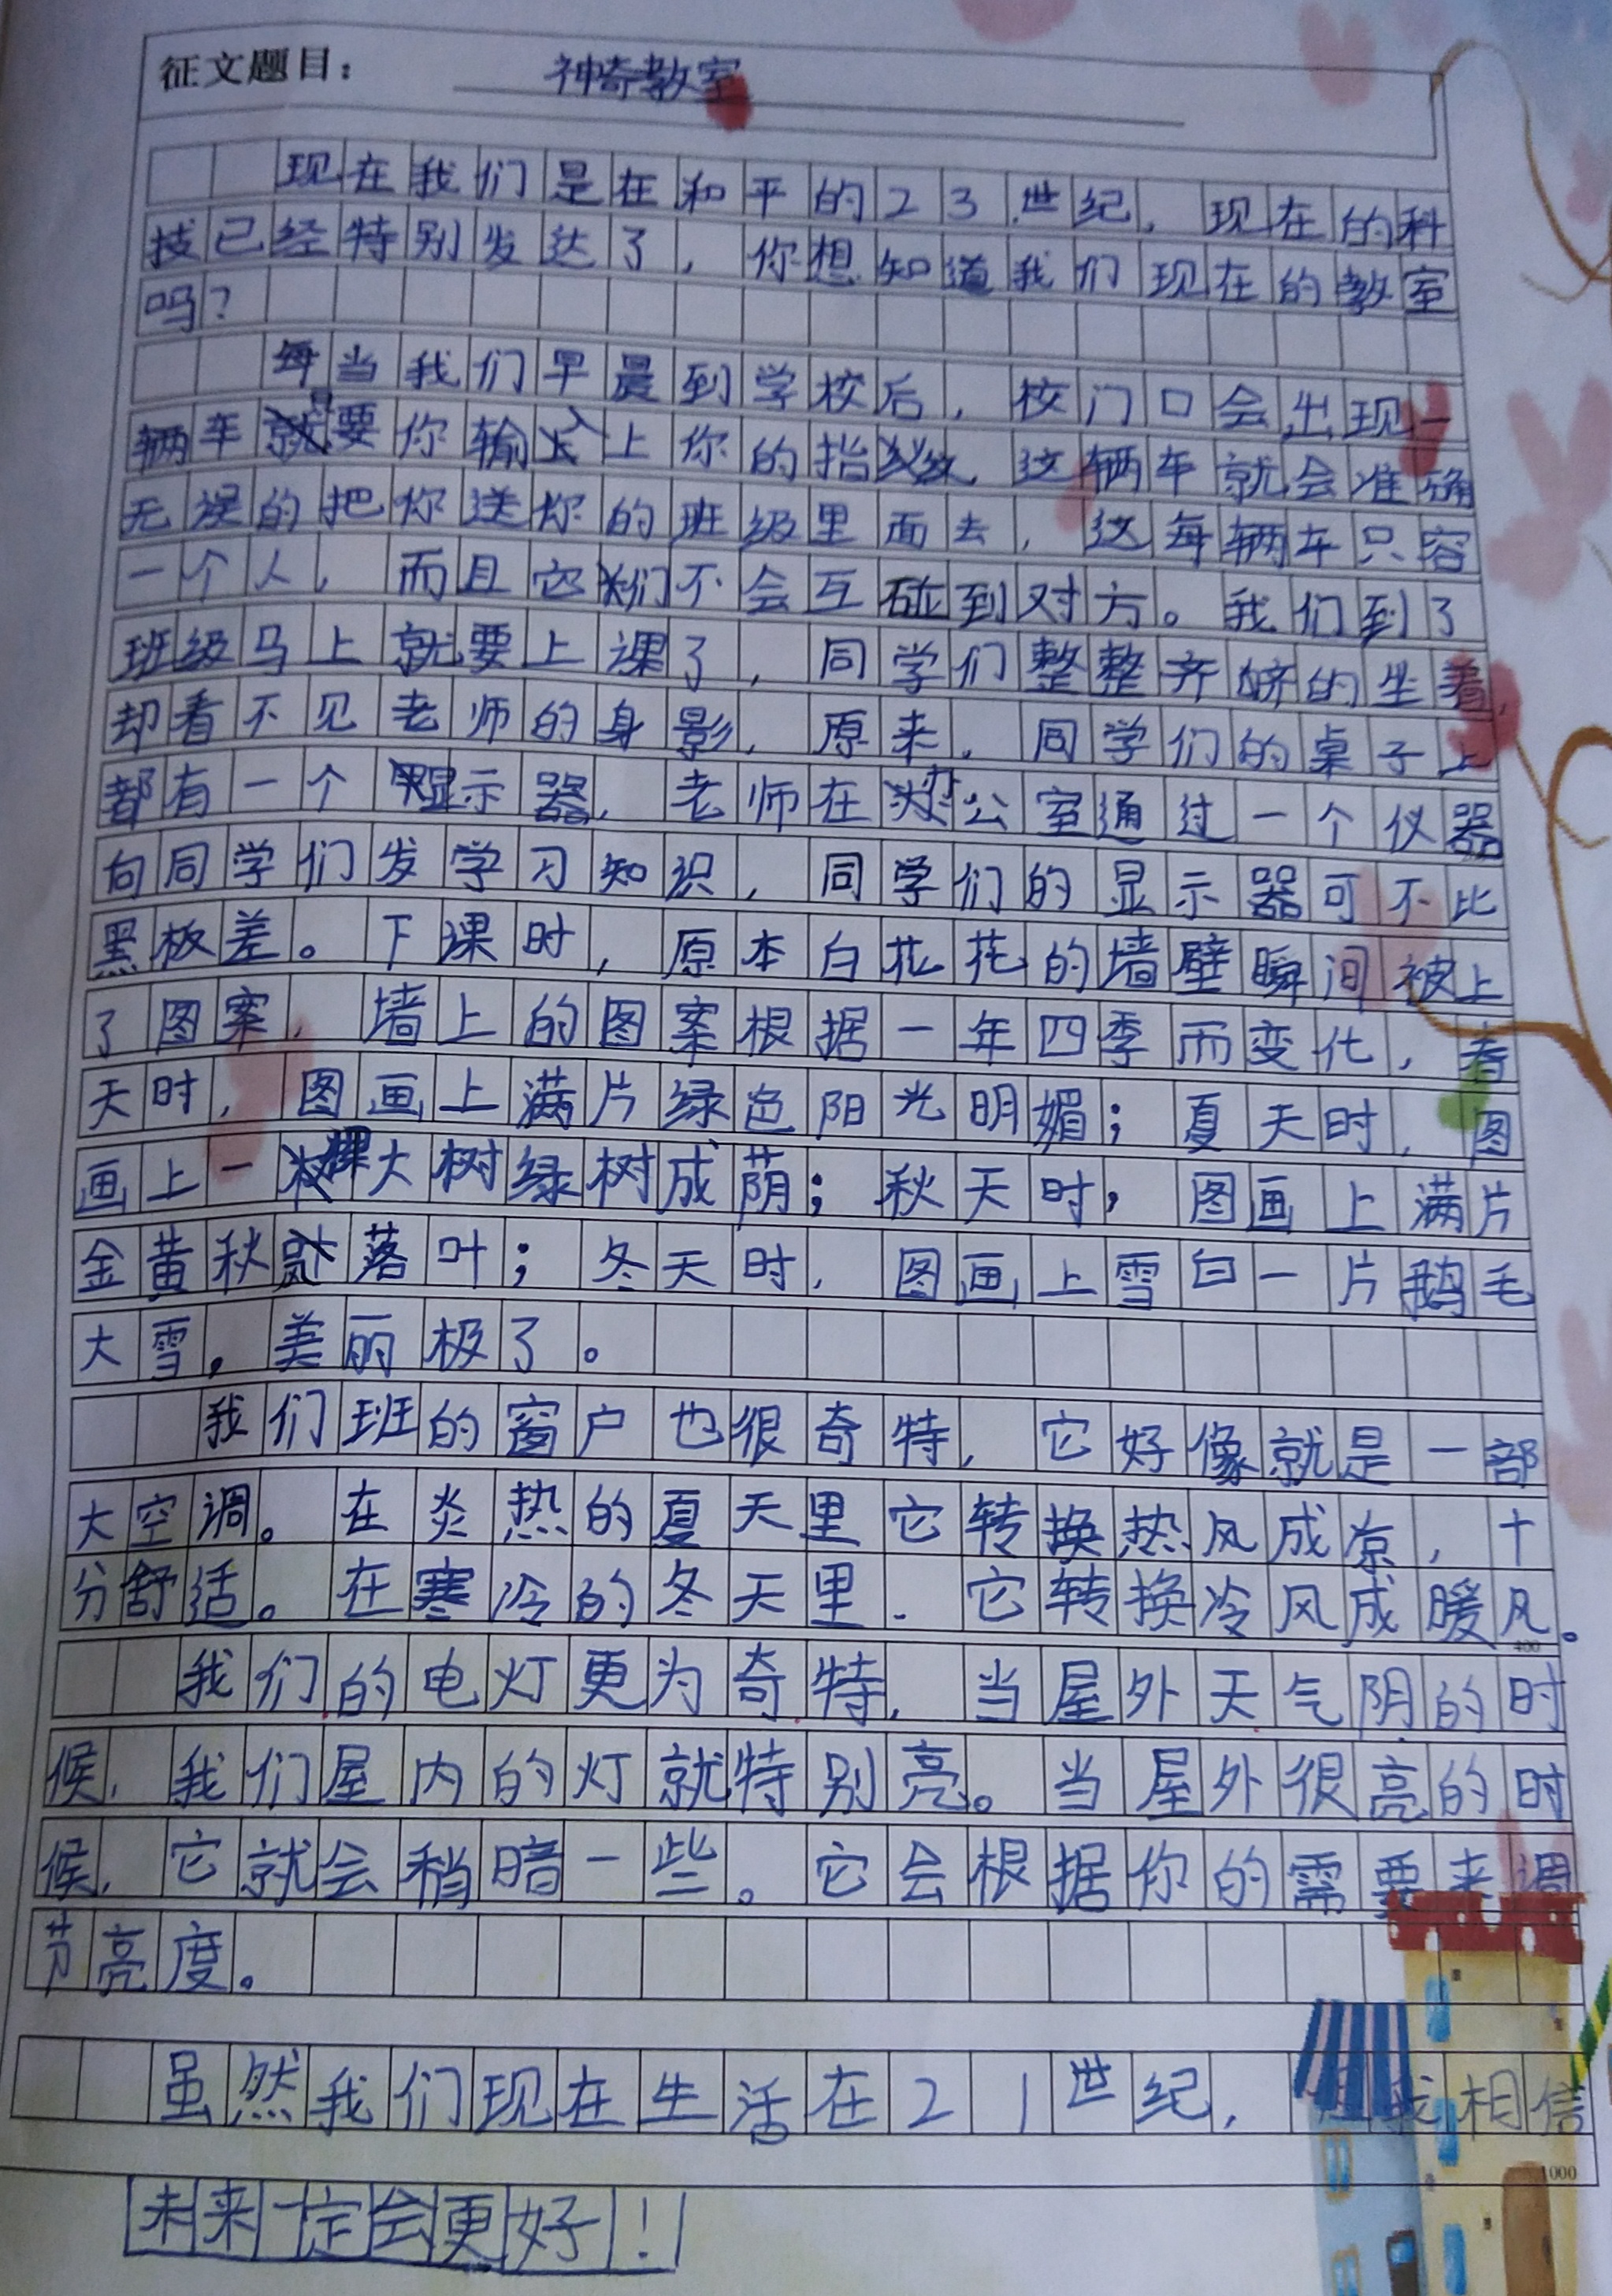 征文题目： 神奇教室
现在我们是在和平的23世纪，现在的科
技已经特别发达了，你想知道我们现在的教室
吗？
每当我们早晨到学校后，校门口会出现一
辆车只要你输入上你的指纹，这辆车就会准确
无误的把你送你的班级里面去，这每辆车只容
一个人，而且它们不会互碰到对方。我们到了
班级马上就要上课了，同学们整整齐齐的坐着，
却看不见老师的身影，原来，同学们的桌子上
都有一个显示器，老师在办公室通过一个仪器
向同学们发学习知识，同学们的显示器可不比
黑板差。下课时，原本白花花的墙壁瞬间被上
了图案，墙上的图案根据一年四季而变化，春
天时，图画上满片绿色阳光明媚；夏天时，图
画上一棵大树绿树成荫；秋天时，图画上满片
金黄秋落叶；冬天时，图画上雪白一片鹅毛
大雪，美丽极了。
我们班的窗户也很奇特，它好像就是一部
大空调。在炎热的夏天里它转换热风成凉，十
分舒适。在寒冷的冬天里，它转换冷风成暖风。
400
我们的电灯更为奇特，当屋外天气阴的时
候，我们屋内的灯就特别亮。当屋外很亮的时
候，它就会稍暗一些。它会根据你的需要来调
节亮度。
虽然我们现在生活在21世纪，但我相信
1000
未来一定会更好！